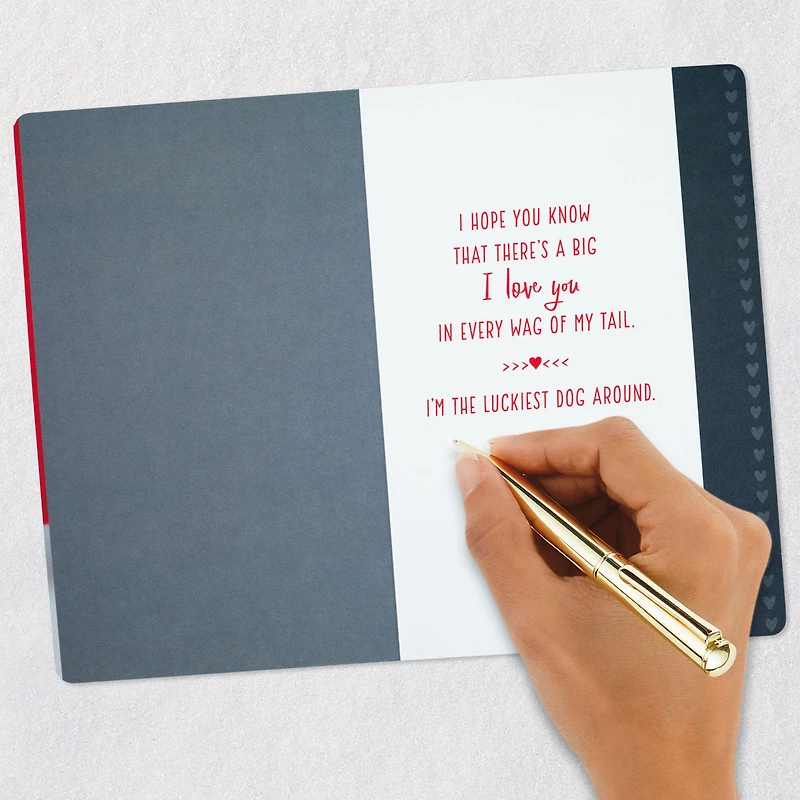 I HOPE YOU KNOW
THAT THERE'S A BIG
I love you
IN EVERY WAG OF MY TAIL.
>>>♥<<<
I'M THE LUCKIEST DOG AROUND.